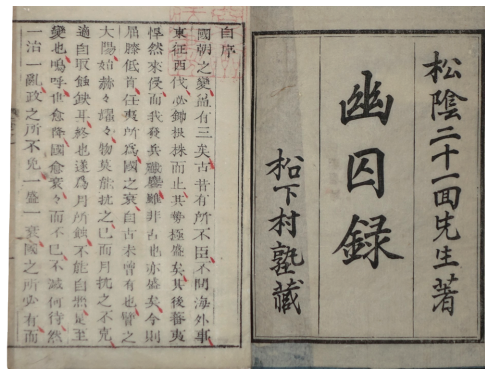 松陰二十一回先生著
幽囚録
松下村塾藏
自序
國朝之變蓋有三矣古昔有所不臣不問海外事
東征西伐必鋤根株而止其勢極盛矣其後蕃夷
悍然來侵而我發兵殲鏖雖非古也亦盛矣今則
屈膝低首任夷所為國之衰自古未曾有也譬之
太陽始赫々爀々物莫能抗之已而月抗之不克
適自取蝕缺耳終也遂為月所蝕不能自照是至
變也嗚呼世愈降國愈衰々而不已不滅何待然
一治一亂政之所不免一盛一衰國之所必有而